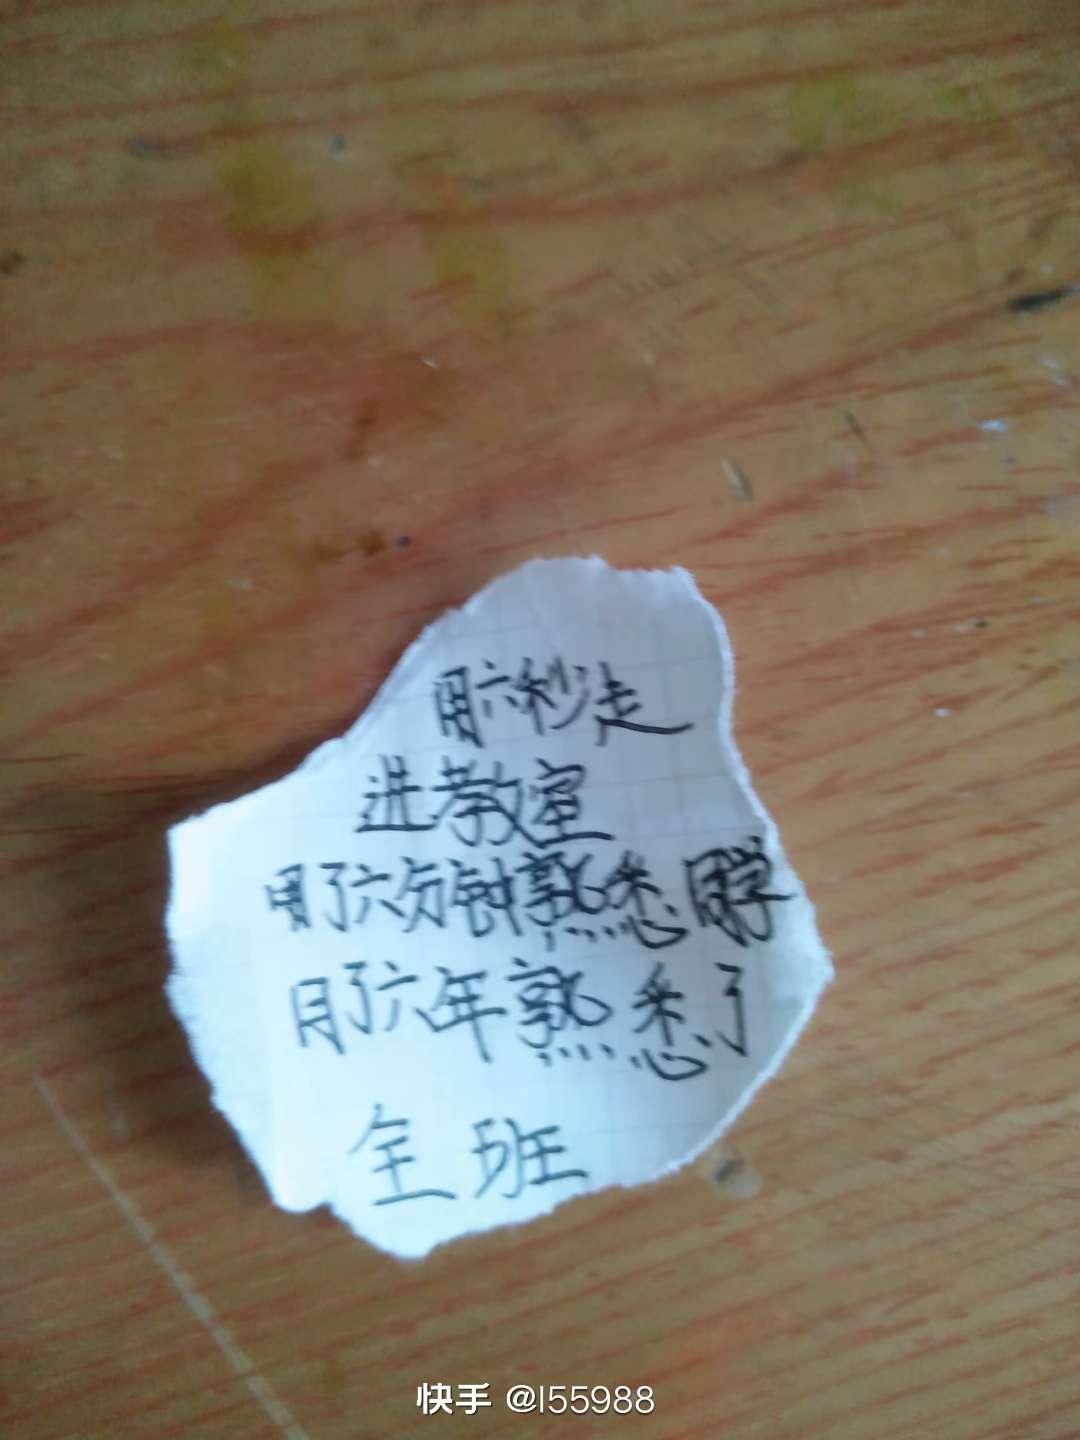 用六秒走
进教室
用了六分钟熟悉同学
用了六年熟悉了
全班
快手 @l55988